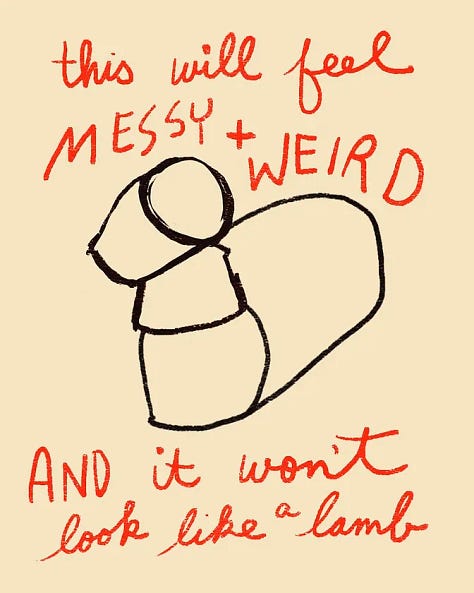 this will feel
MESSY + WEIRD
AND it won't
look like a lamb